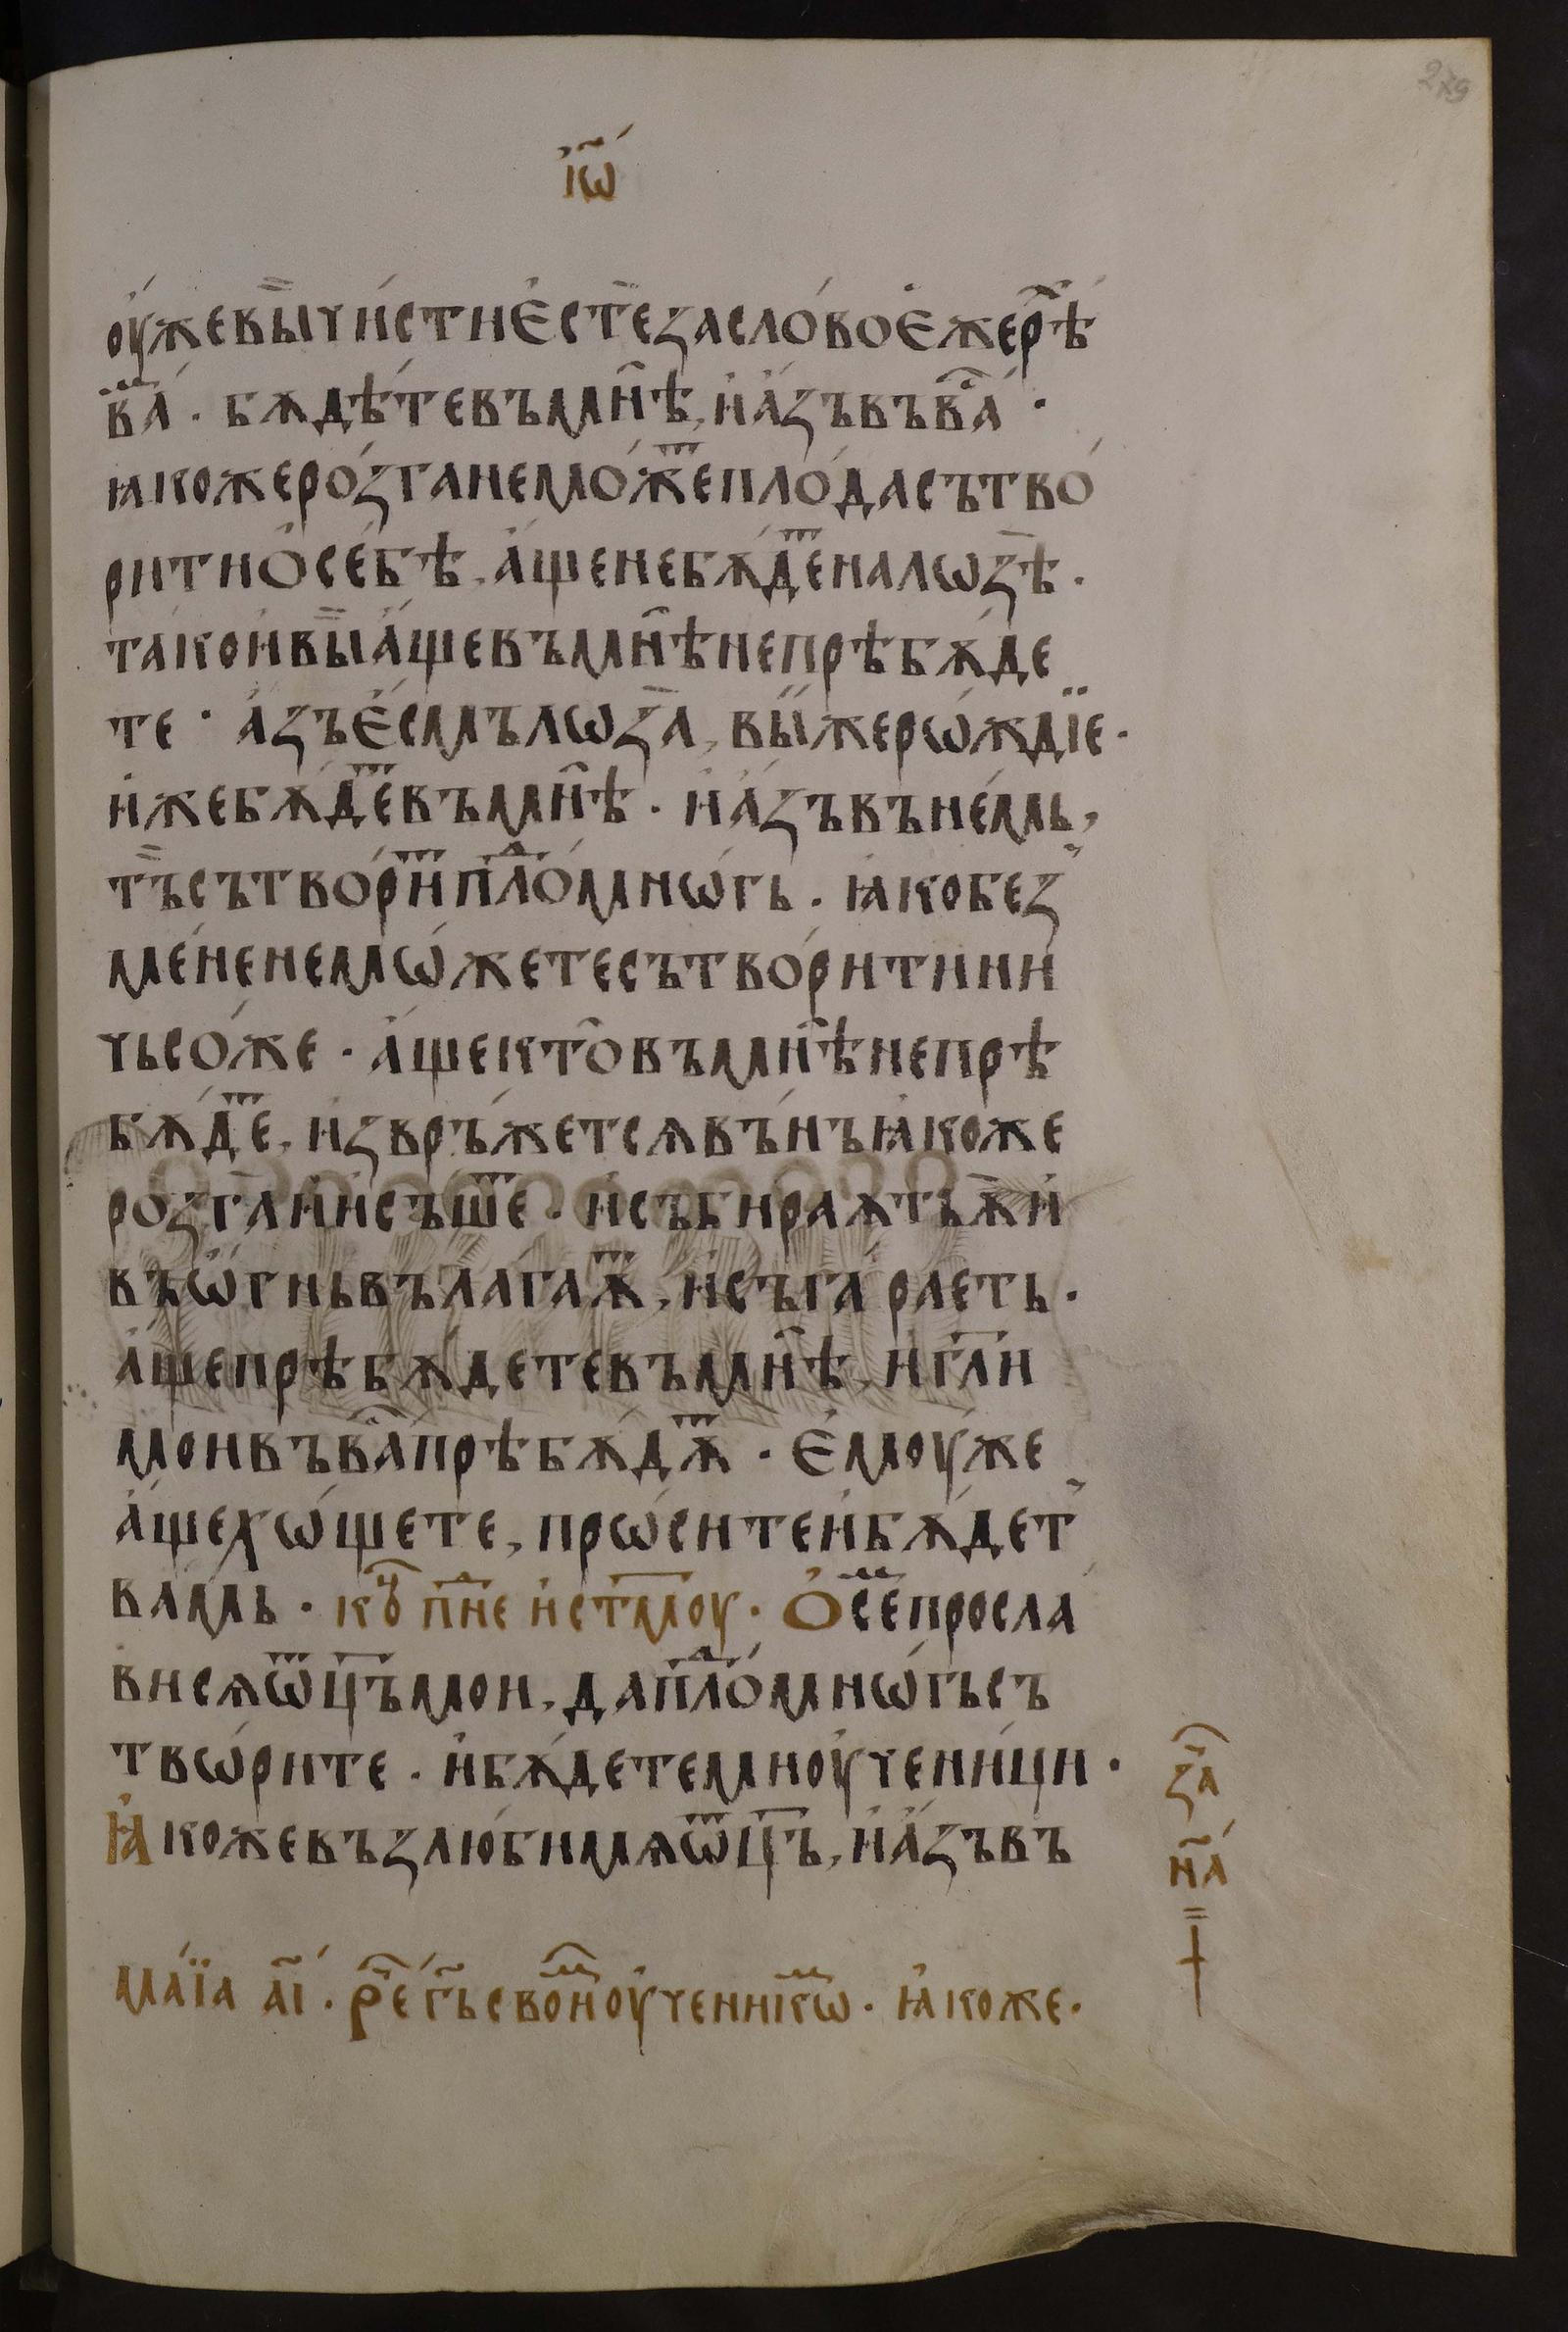 279
і҆ѡ҃
оу҆́жевы̏чи́стиѐсте̏засло́воѐжерѣ́х
ва́м . бѫдѣ́тевъмнѣ̑, и҆а҆́зъвъва́с .
ꙗкожеро́згенемо́жетпло́дасътво́
ритиѻ҆себѣ̀, а҆́щенебѫ́детналѡзѣ̀ .
та́кои҆вы̏а҆́щевъмнѣ̑непрѣбѫ́де
те . а҆́зъѐсмълѡза̀, вы́жерѡ́ждїе .
и҆жебѫ́детвъмнѣ̑ . и҆а҆́зъвъне́мь,
тъ̏сътвори́тпло́дмнѡ́гь . ꙗ҆кобез̾
ме́ненемѡ́жетесътво́ритини
чьсо́же . а҆́щектѡ̑въмнѣ̑непрѣ
бѫ́дет, и҆звръ́жетсѧвъ́нъꙗ҆коже
розгаи҆и҆съ́шет . и҆събираѫтъ̀жи҆
въѡ҆́гньвълага́ѫт, и҆съгараеть .
а҆́щепрѣбѫ́детевъмнѣ̑, и҆гл҃и
моивъва́спрѣбѫ́дѫт . ѐмоу́же
а҆́щехѡ́щете, прѡ́ситеи҆бѫ́дет̾
ва́мь . коⷰ҇ пⷣне и҆ ст҃моу . Ѻ҆семпросла́
висѧѡ҃ц҃ъмои, дапло́дмнѡ́гьсъ
твѡ́рите . и҆бѫ́детемиоу҆чени́ци .
Ꙗ҆кожевъзлю́бимѧѡ҃ц҃ъ, и҆а҆́зъвъ
за
на́
ма́їа а҃і . ре́ч гь҃ своимоу҆ченикѡм . ꙗ҆коже .